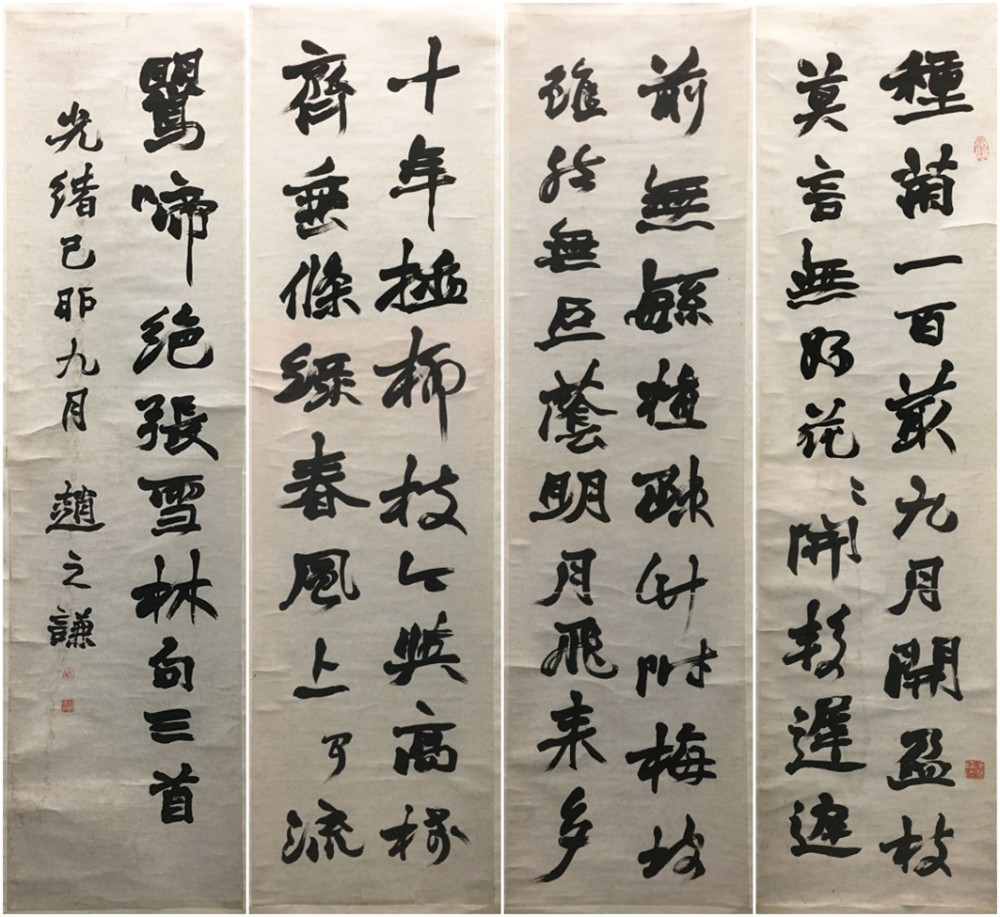 種菊一百叢九月開盈枝
莫言無好花〻開較遲遲
前無緜種疎竹附梅坡
雖然無巨蔭明月飛來多
十年插柳枝今與高樓
齊垂條綠春風上可流
鶯啼絕張雪林句三首
光緒己卯九月 趙之謙